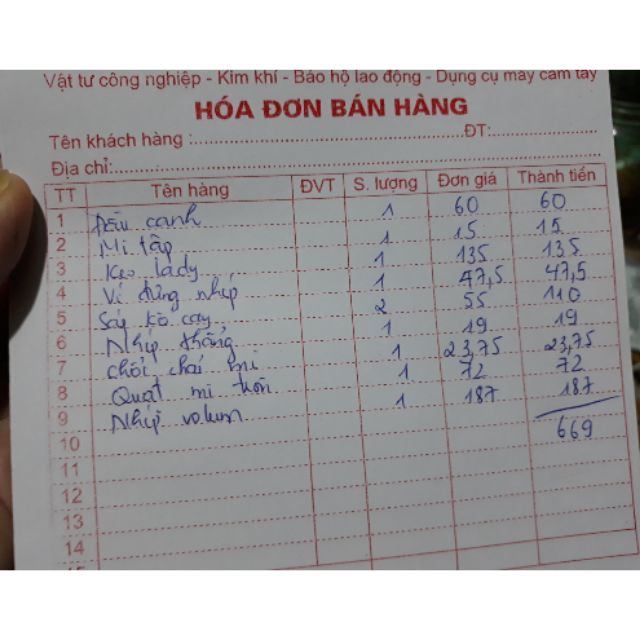 Vật tư công nghiệp - Kim khí - Bảo hộ lao động - Dụng cụ máy cầm tay
HÓA ĐƠN BÁN HÀNG
Tên khách hàng : ĐT:
Địa chỉ:
TT Tên hàng ĐVT S. lượng Đơn giá Thành tiền
1 Đầu canh 1 60 60
2 Mi tập 1 15 15
3 Keo lady 1 135 135
4 Ví đựng nhíp 1 47,5 47,5
5 Sáy 2 55 110
6 Nhíp thẳng 1 19 19
7 chổi chải mi 1 23,75 23,75
8 Quạt mi 1 72 72
9 Nhíp volum 1 187 187
10 669
11
12
13
14